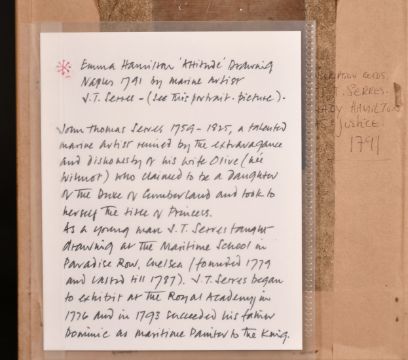 Emma Hamilton 'Attitude' Drawing
Naples 1791 by marine Artist
J.T. Serres - (see this portrait - picture).
John Thomas Serres 1759 - 1825, a talented
marine artist ruined by the extravagance
and dishonesty of his wife Olive (née
Wilmot) who claimed to be a Daughter
of the Duke of Cumberland and took to
herself the title of Princess.
As a young man J.T. Serres taught
drawing at the Maritime School in
Paradise Row, Chelsea (founded 1779
and lasted till 1787). J.T. Serres began
to exhibit at the Royal Academy in
1776 and in 1793 succeeded his father
Dominic as maritime Painter to the King.
J.T. SERRES.
LADY HAMILTON
JUSTICE
1791